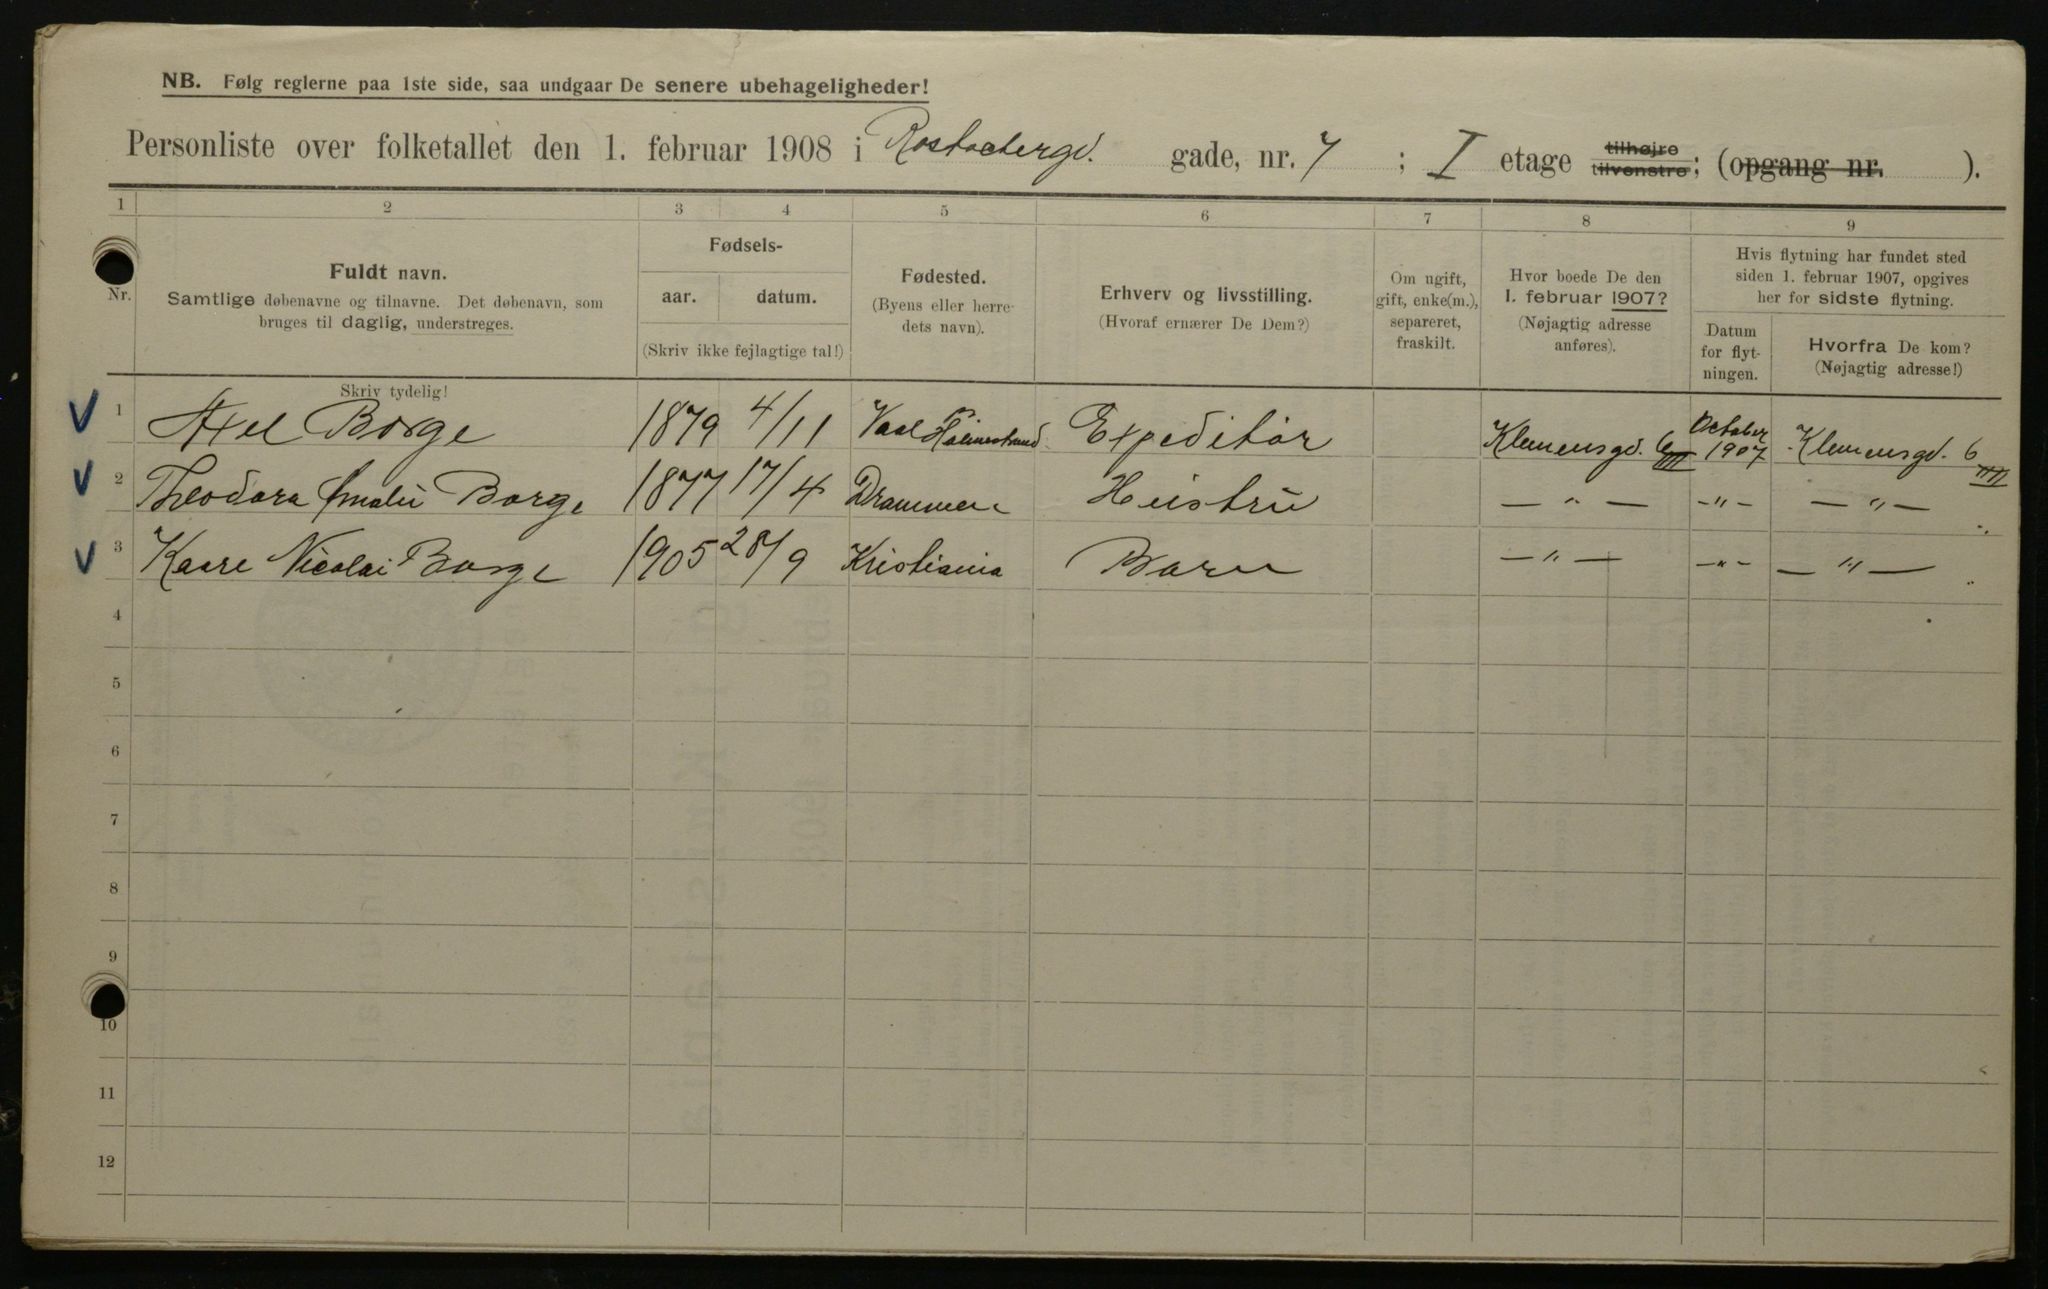 NB. Følg reglerne paa 1ste side, saa undgaar De senere ubehageligheder!
Personliste over folketallet den 1. februar 1908 i Rostocbergd. gade, nr. 7 ; I etage tilhøjre tilvenstre; (opgang nr. ).
1 2 3 4 5 6 7 8 9
Nr.
Fuldt navn.
Samtlige døbenavne og tilnavne. Det døbenavn, som
bruges til daglig, understreges.
Skriv tydelig!
Fødsels-
aar. datum.
(Skriv ikke fejlagtige tal!)
Fødested.
(Byens eller herre-
dets navn).
Erhverv og livsstilling.
(Hvoraf ernærer De Dem?)
Om ugift,
gift, enke(m.),
separeret,
fraskilt.
Hvor boede De den
1. februar 1907?
(Nøjagtig adresse
anføres).
Hvis flytning har fundet sted
siden 1. februar 1907, opgives
her for sidste flytning.
Datum
for flyt-
ningen.
Hvorfra De kom?
(Nøjagtig adresse!)
1 Axel Borge 1879 4/11 Holmestrand Expeditør Klemensgd. 6 III October 1907 Klemensgd. 6 III
2 Theodora Amalie Borge 1877 17/4 Drammen Hustru — " — -"- — " —
3 Kaare Nicolai Borge 1905 28/9 Kristiania Barn — " — -"- — " —
4
5
6
7
8
9
10
11
12